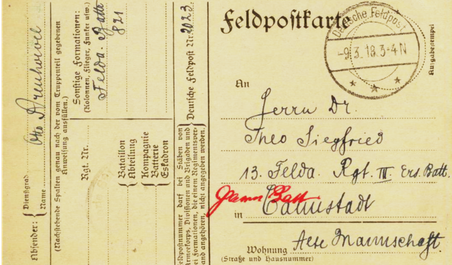 Feldpostkarte
Deutsche Feldpost
-9.3.18.3-4N
* * *
Ausgabestempel
An
Herrn Dr.
Theo Siegfried
13. Felda. Rgt. III Ers. Batt.
in Cannstadt
Wohnung
(Straße und Hausnummer)
Absender:
Dienstgrad:
Name
Otto
(Nachstehende Spalten genau nach der vom Truppenteil gegebenen
Anweisung ausfüllen.)
Sonstige Formationen:
(Kolonnen, Flieger, Funker usw.)
Felda. Batt
821
Rgt. Nr.
Bataillon
Abteilung
Kompagnie
Batterie
Eskadron
Deutsche Feldpost Nr. 2023